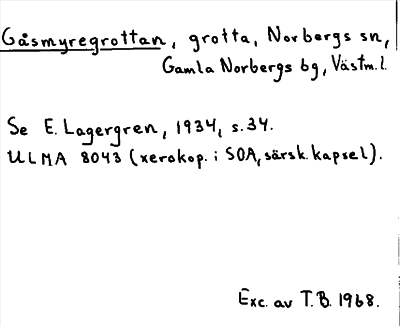 Gåsmyregrottan, grotta, Norbergs sn,
Gamla Norbergs bg, Västm.l.
Se E. Lagergren, 1934, s. 34.
ULMA 8043 (xerokop. i SOA, särsk. kapsel).
Exc. av T.B. 1968.